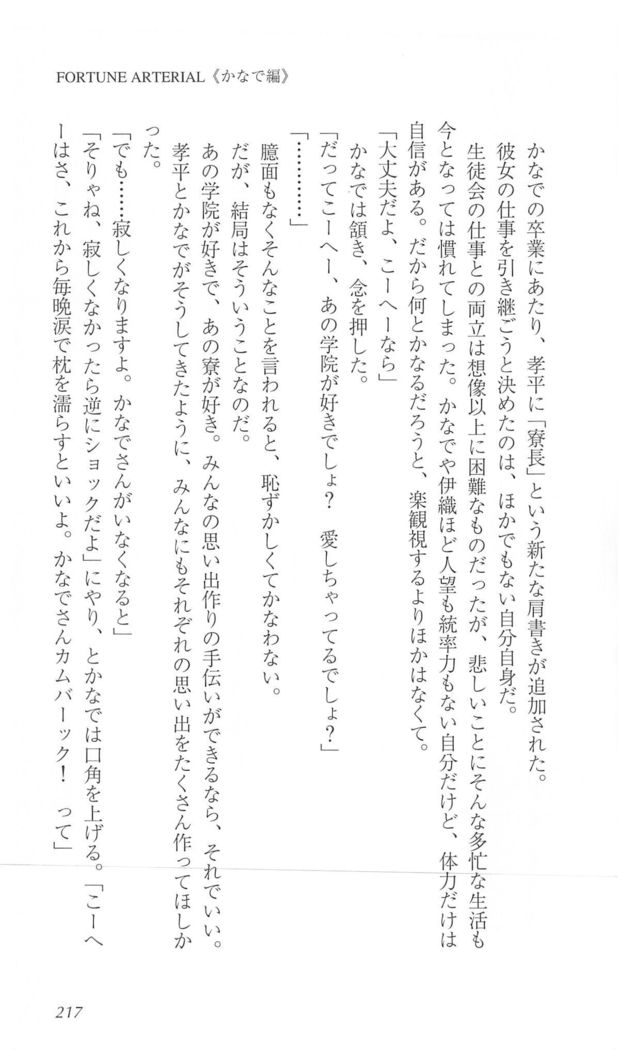 FORTUNE ARTERIAL《かなで編》
　かなでの卒業にあたり、孝平に「寮長」という新たな肩書きが追加された。
　彼女の仕事を引き継ごうと決めたのは、ほかでもない自分自身だ。
　生徒会の仕事との両立は想像以上に困難なものだったが、悲しいことにそんな多忙な生活も
今となっては慣れてしまった。かなでや伊織ほど人望も統率力もない自分だけど、体力だけは
自信がある。だから何とかなるだろうと、楽観視するよりほかはなくて。
「大丈夫だよ、こーへーなら」
　かなでは頷き、念を押した。
「だってこーへー、あの学院が好きでしょ？　愛しちゃってるでしょ？」
「…………」
　臆面もなくそんなことを言われると、恥ずかしくてかなわない。
　だが、結局はそういうことなのだ。
　あの学院が好きで、あの寮が好き。みんなの思い出作りの手伝いができるなら、それでいい。
　孝平とかなでがそうしてきたように、みんなにもそれぞれの思い出をたくさん作ってほしか
った。
「でも……寂しくなりますよ。かなでさんがいなくなると」
「そりゃね、寂しくなかったら逆にショックだよ」にやり、とかなでは口角を上げる。「こーへ
ーはさ、これから毎晩涙で枕を濡らすといいよ。かなでさんカムバーック！　って」
217